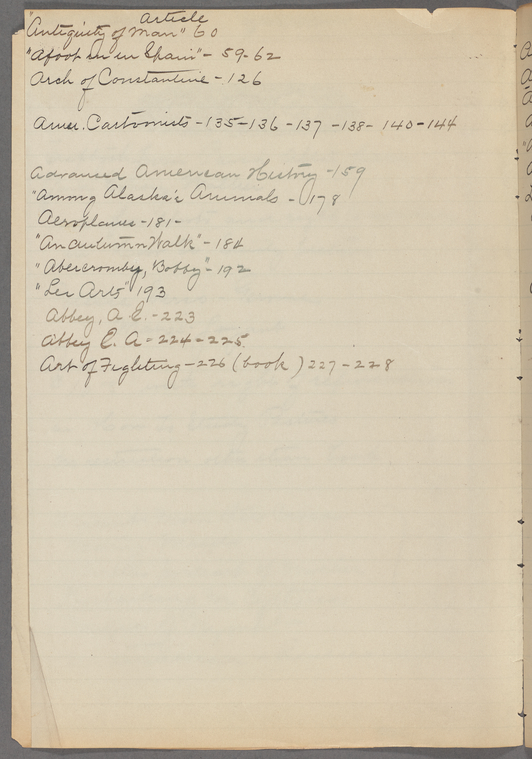 Article
"Antiquity of Man" 60
"Afoot in in Spain" - 59-62
Arch of Constantine - 126
Amer. Cartoonists - 135-136 - 137 - 138 - 140 - 144
Advanced American History - 159
"Among Alaska's Animals - 178
Aeroplanes - 181 -
"An Autumn Walk" - 184
"Abercromby, Bobby" - 192
"Les Arts" 193
Abbey, A E. - 223
Abbey E. A - 224 - 225
Art of Fighting - 226 (book) 227 - 228